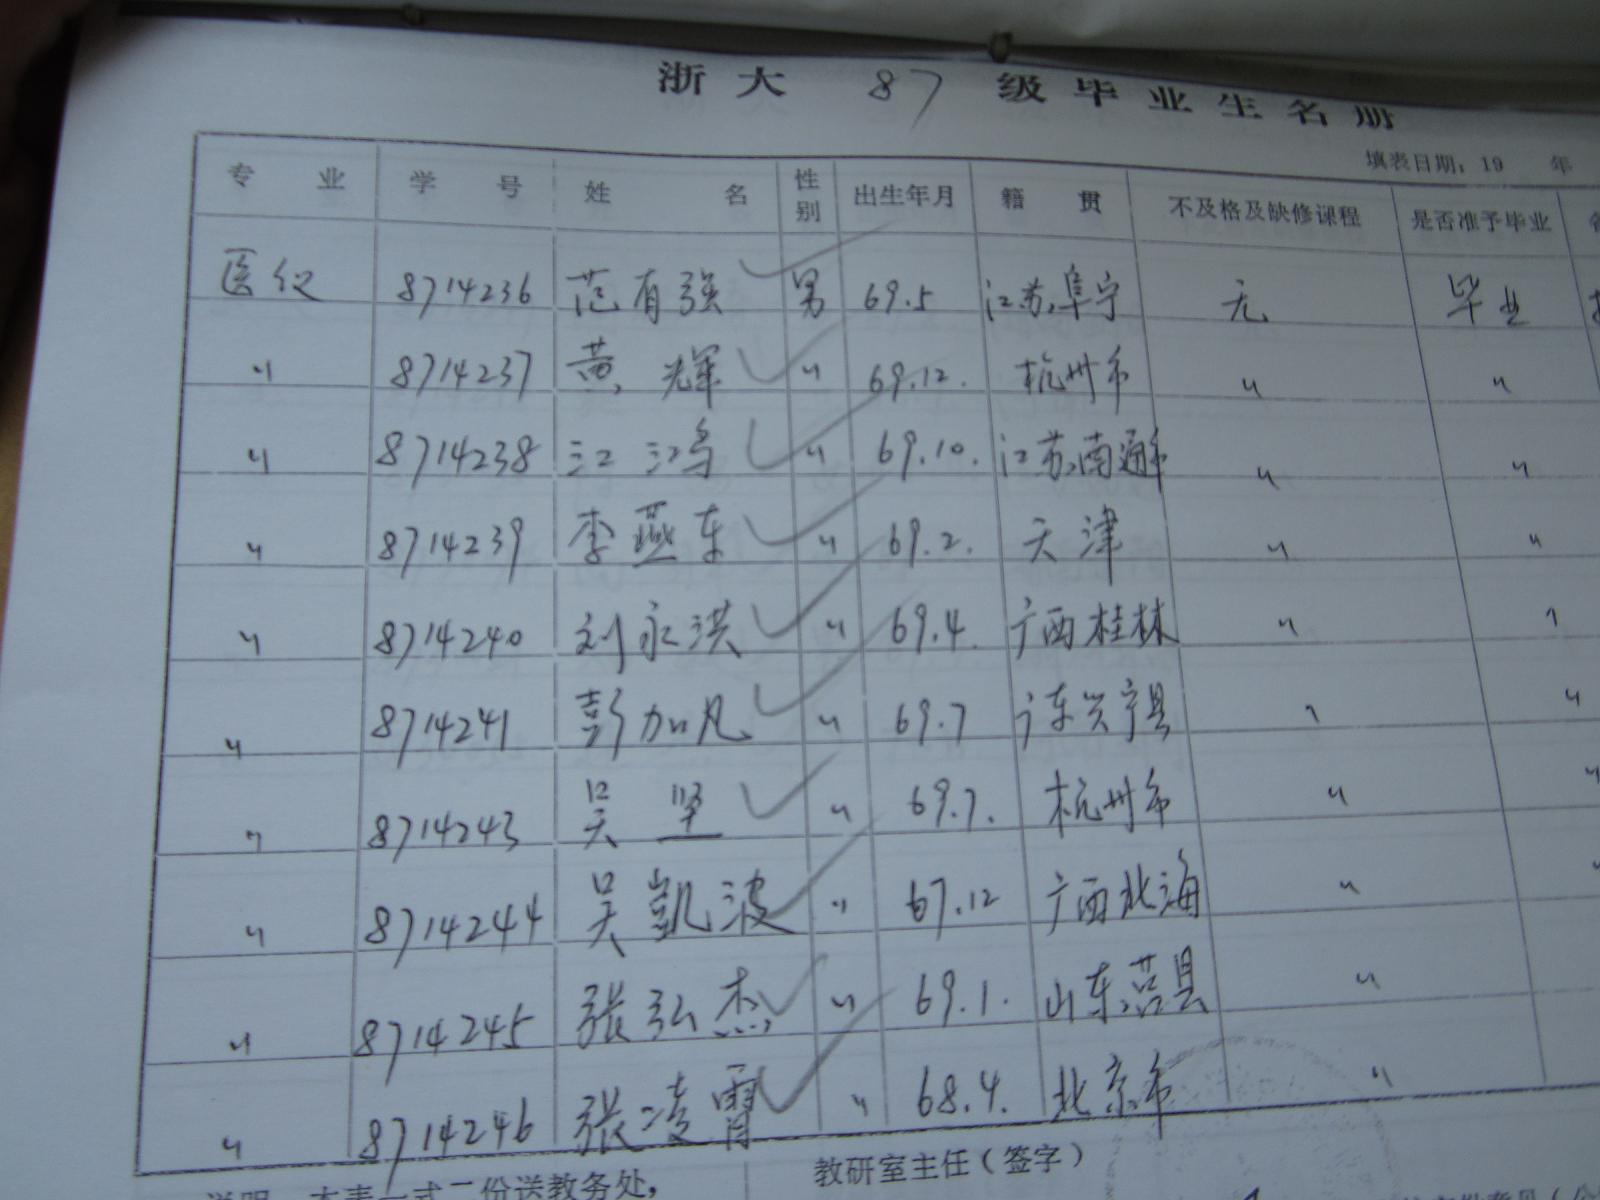 浙大 87 级毕业生名册
填表日期：19 年
专业 学号 姓名 性别 出生年月 籍贯 不及格及缺修课程 是否准予毕业
医仪 8714236 范有强 男 69.5 江苏阜宁 无 毕业
〃 8714237 黄辉 〃 69.12. 杭州市 〃 〃
〃 8714238 江鸿 〃 69.10. 江苏南通市 〃 〃
〃 8714239 李燕东 〃 69.2. 天津 〃 〃
〃 8714240 刘永洪 〃 69.4. 广西桂林 〃 〃
〃 8714241 彭加凡 〃 69.7 广东兴宁县 〃 〃
〃 8714243 吴坚 〃 69.7. 杭州市 〃 〃
〃 8714244 吴凱波 〃 67.12 广西北海 〃 〃
〃 8714245 张弘杰 〃 69.1. 山东莒县 〃
〃 8714246 张凌霄 〃 68.4. 北京市 〃
教研室主任（签字）
说明 本表一式二份送教务处，